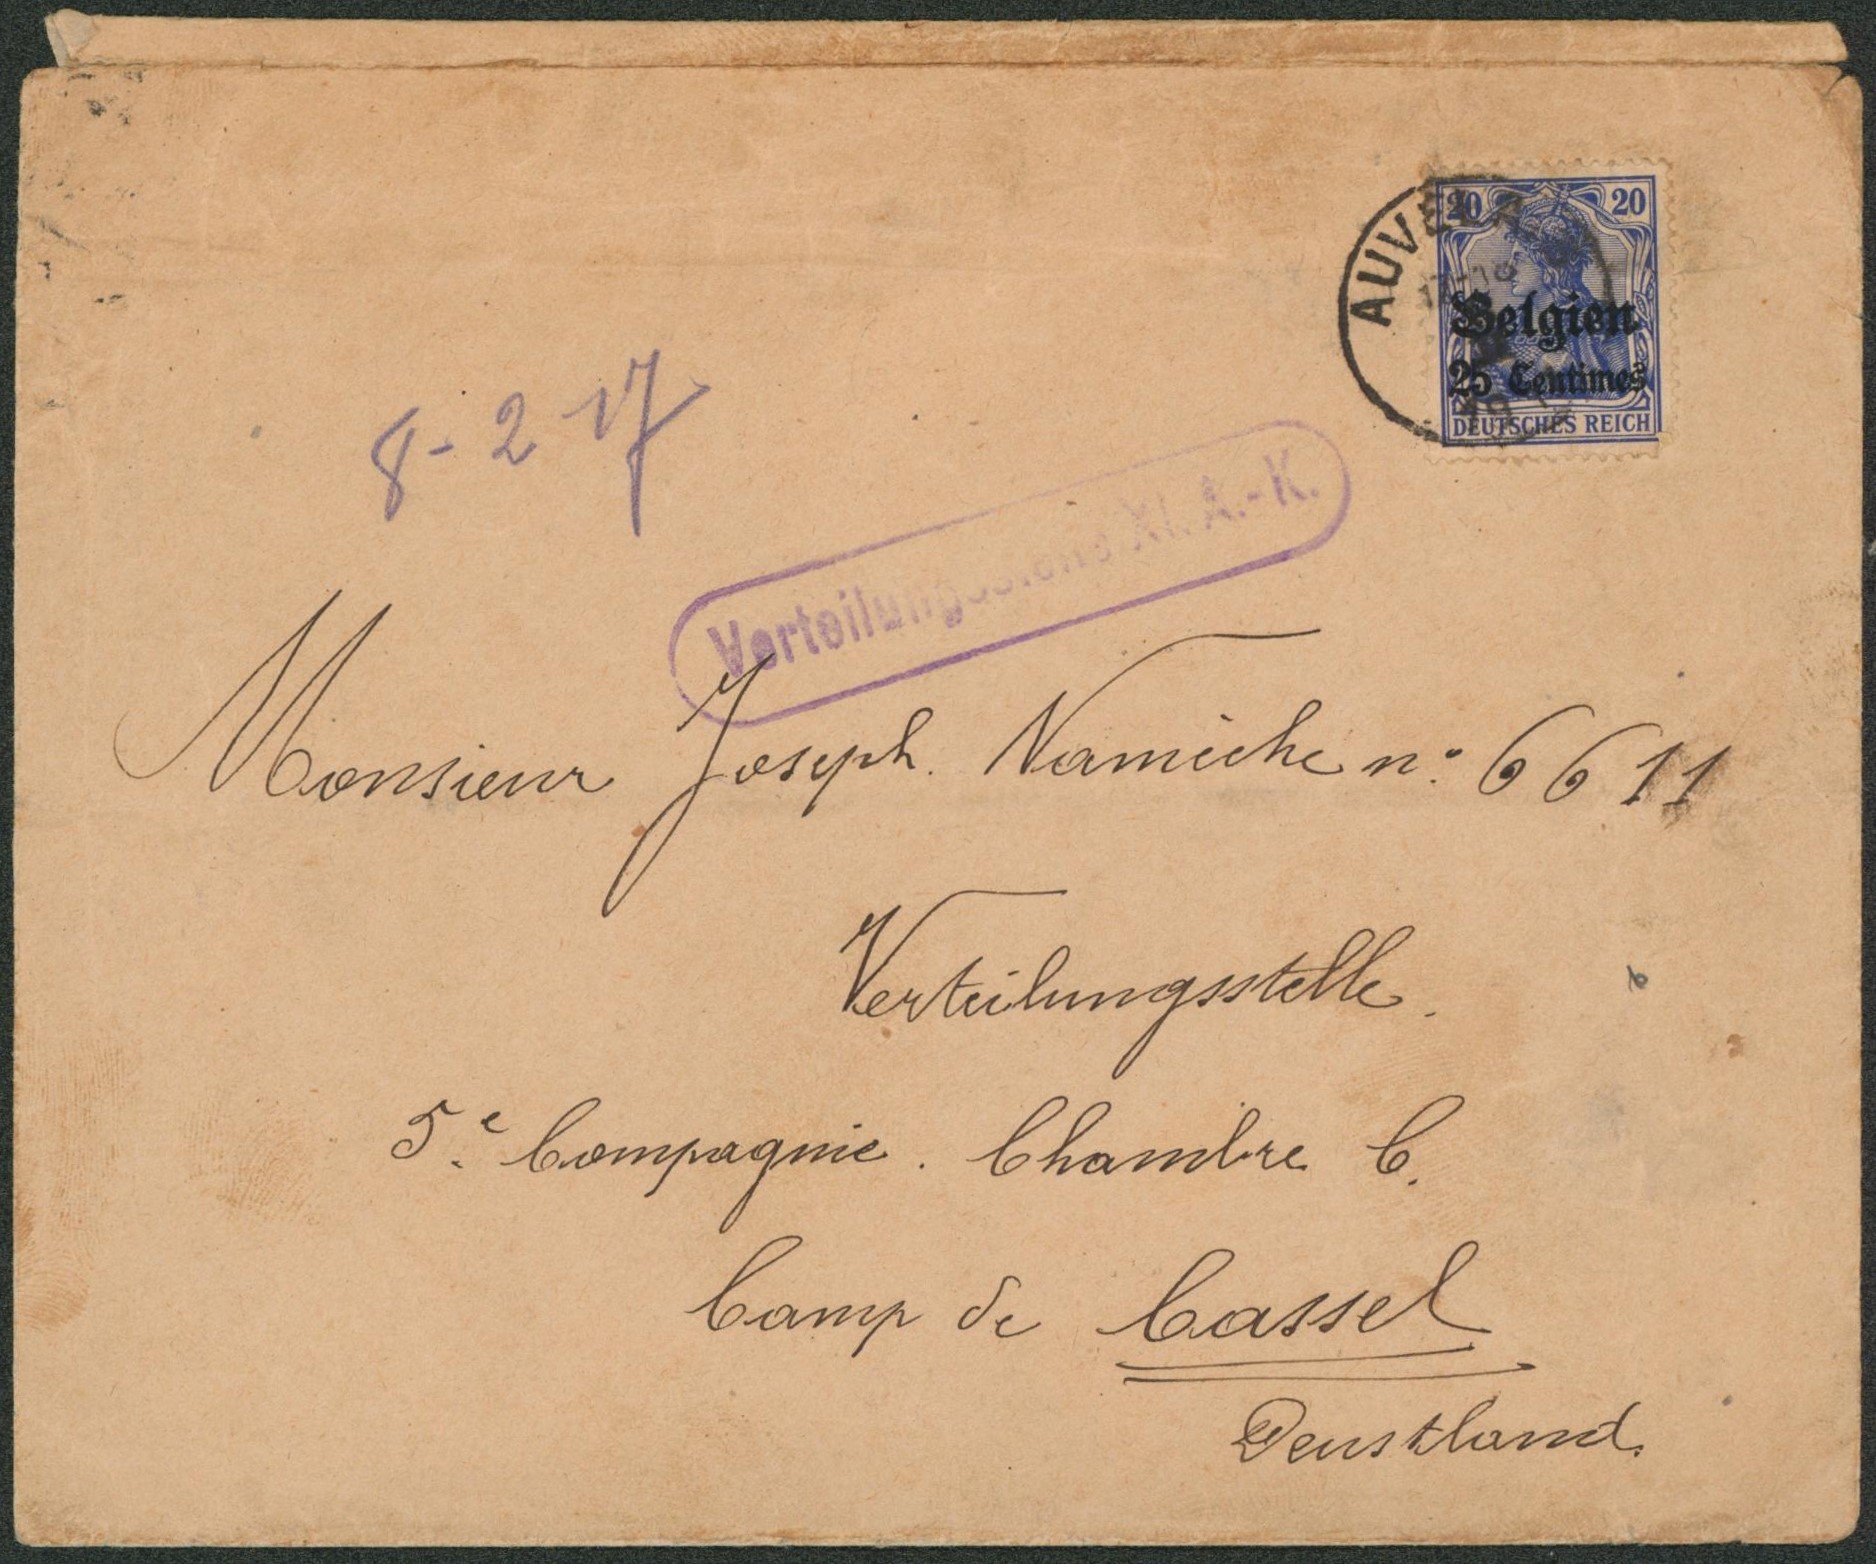 AUVELAIS
20 20
Belgien
25 Centimes
DEUTSCHES REICH
8-2 17
Verteilungsstelle XI. A.-K.
Monsieur Joseph Namèche n° 6611
Verteilungsstelle.
5e Compagnie. Chambre C.
Camp de Cassel
Deustland.